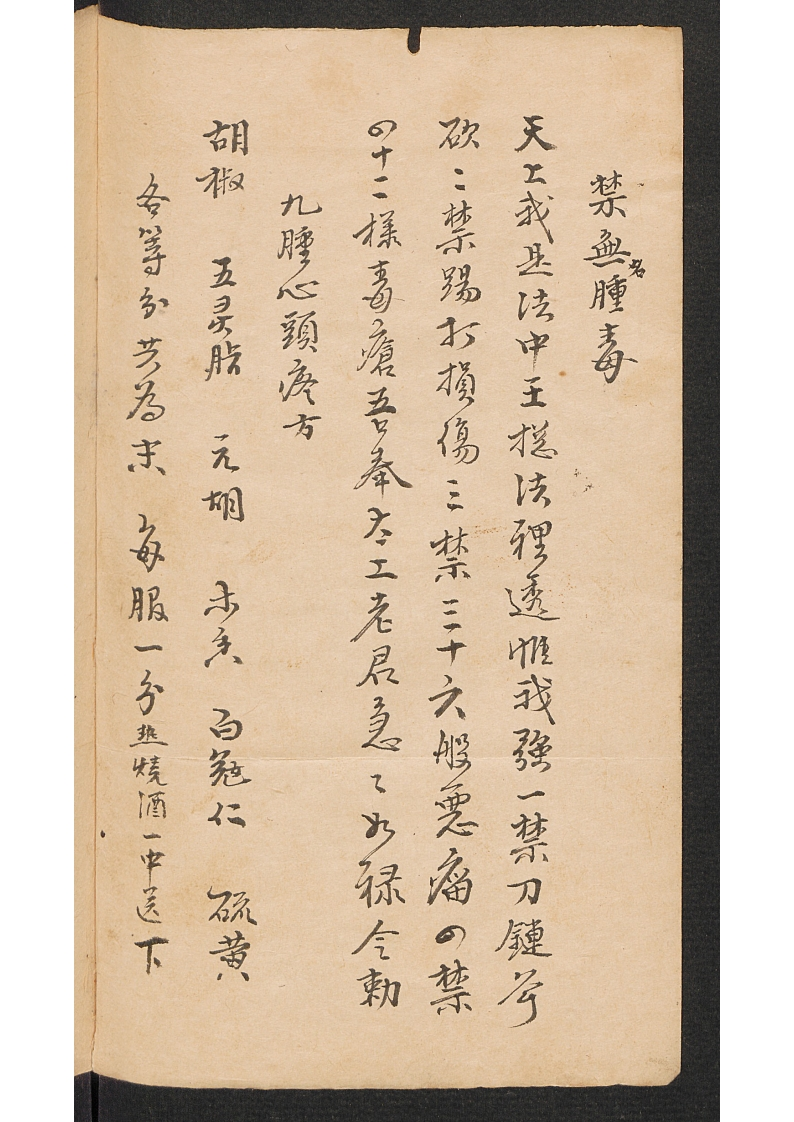 禁無名腫毒
天上我是法中王揔法裡透惟我強一禁刀鏈斧
砍二禁踢打損傷三禁三十六般惡瘤四禁
四十二樣毒瘡吾奉太上老君急〻如禄令勅
九腫心頭疼方
胡椒 五灵脂 元胡 木香 白蔻仁 硫黄
各等分共為末 每服一分热燒酒一中送下